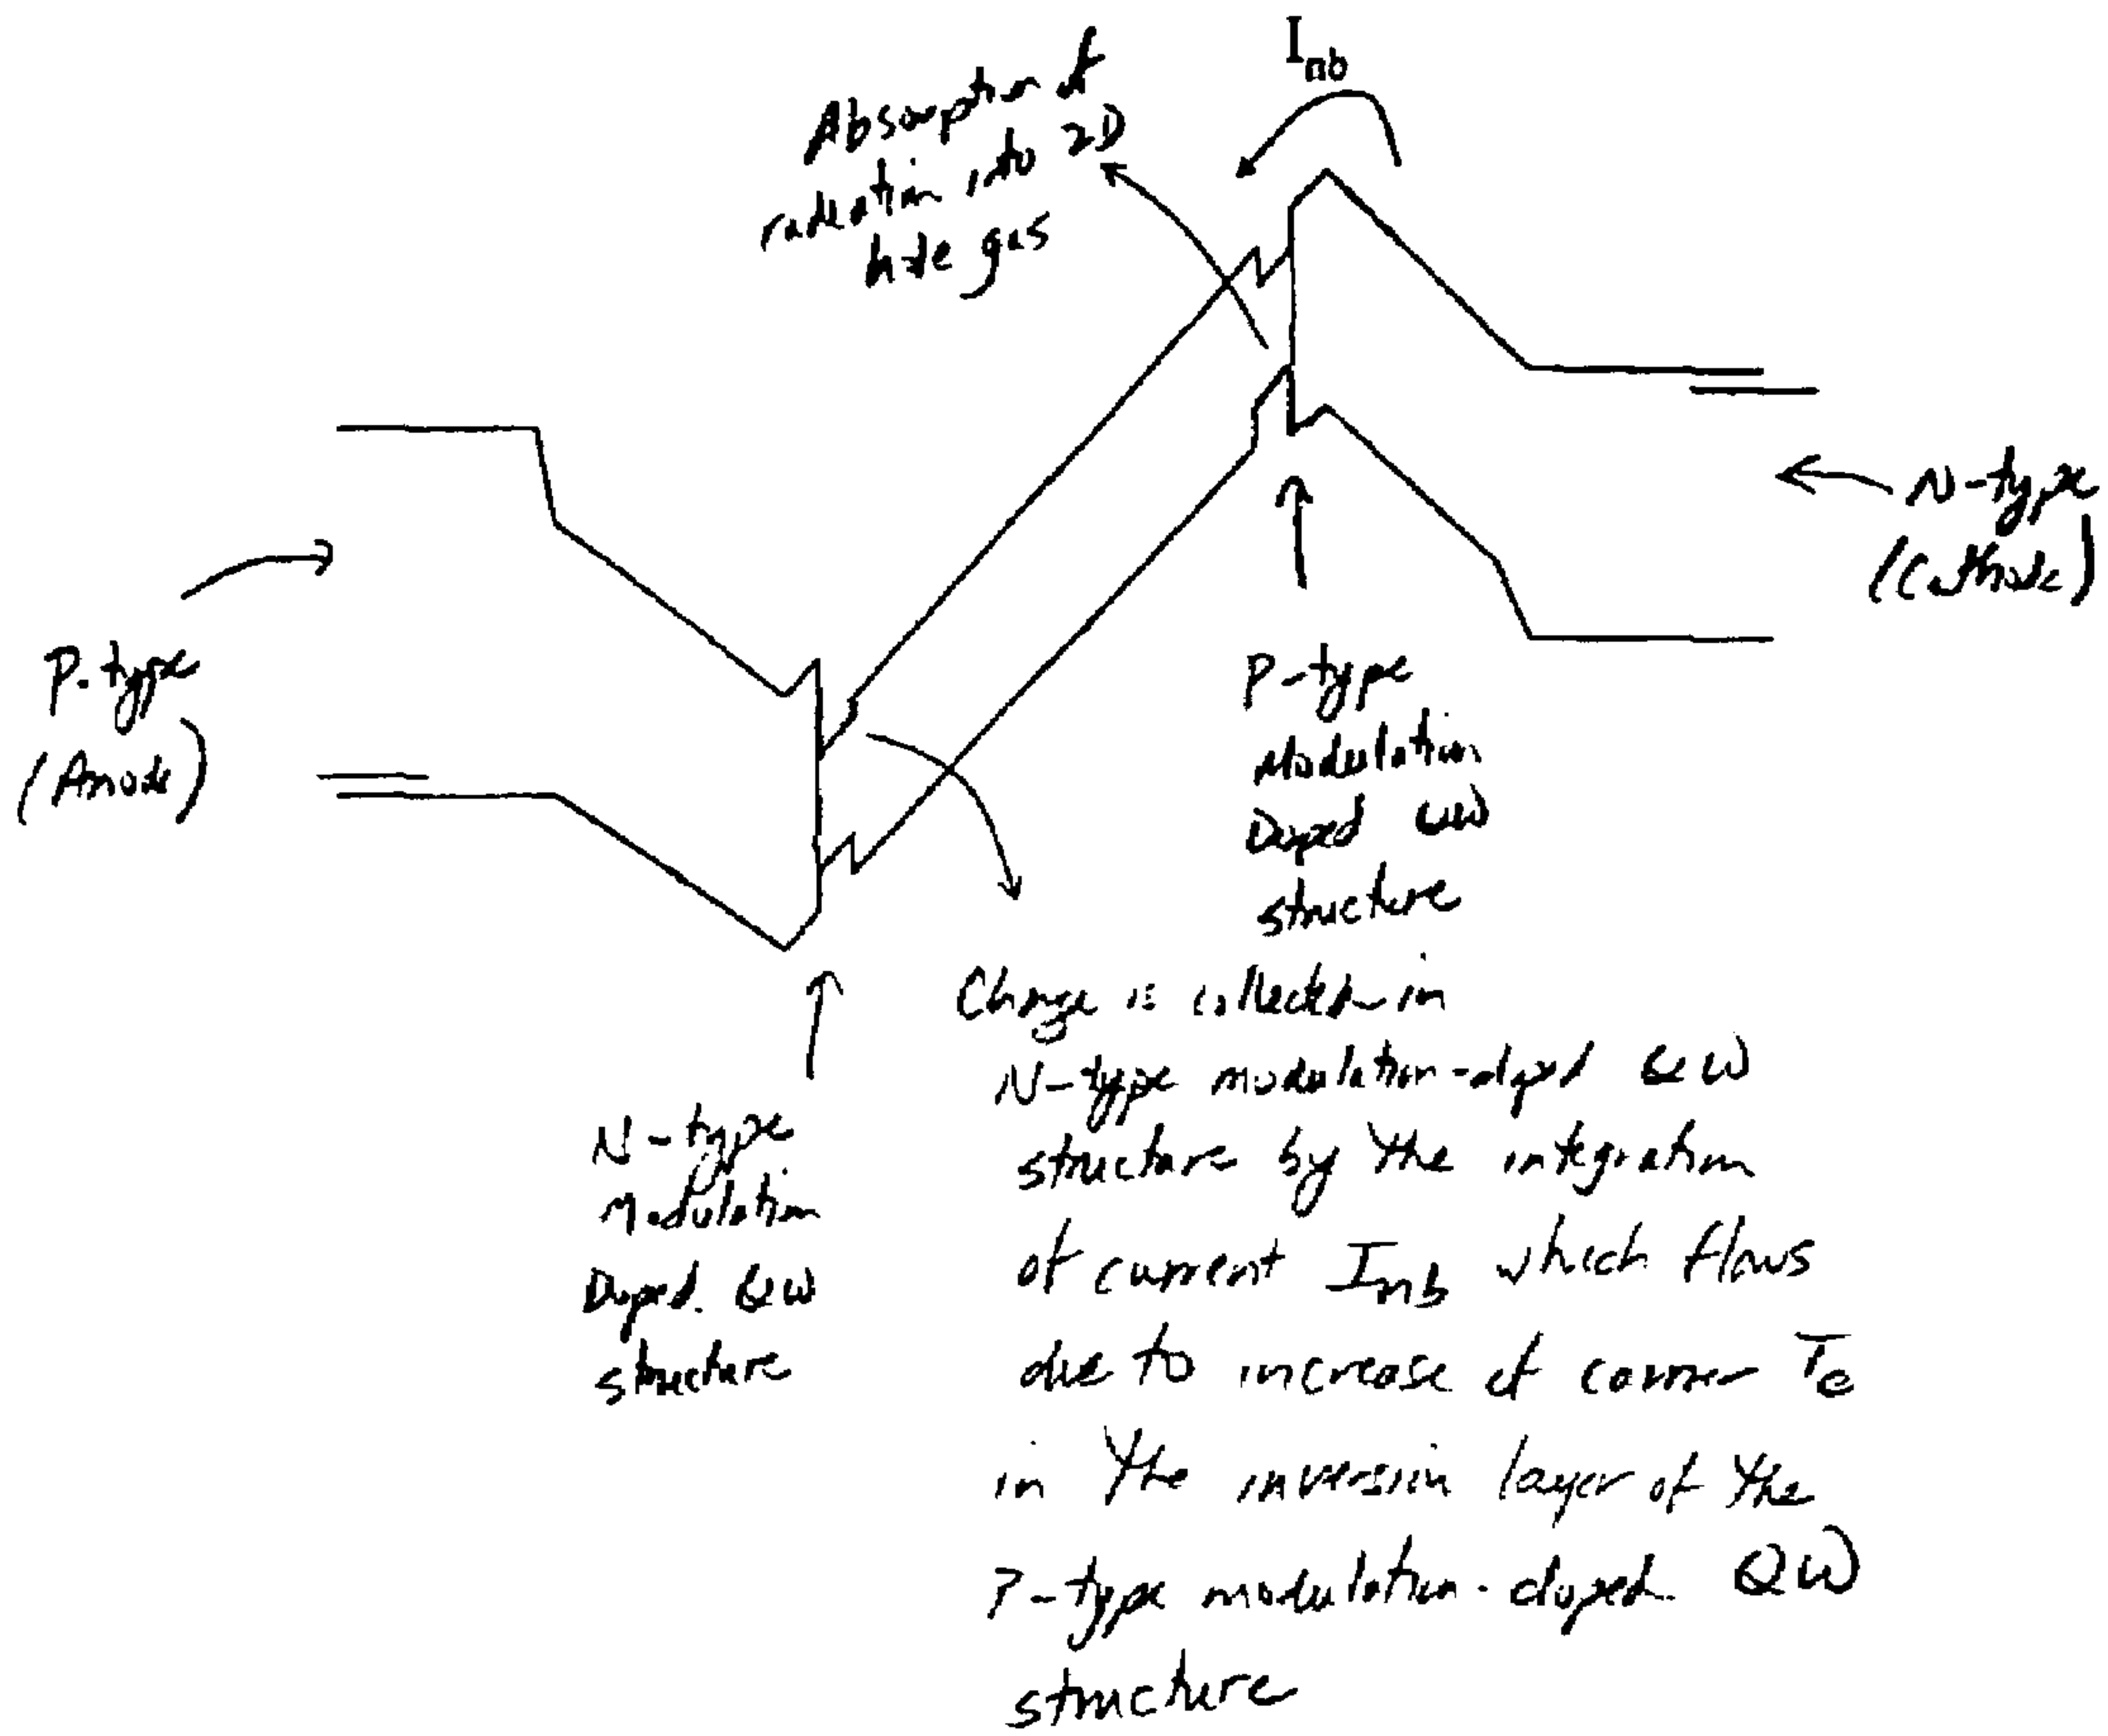 I_nb
Absorption of
radiation into 2D
hole gas
N-type
(Cathode)
P-type
(Anode)
P-type
Modulation
Doped QW
structure
N-type
Modulation
Doped QW
structure
Charge is collected in
N-type modulation-doped QW
structure by the integration
of current Inb which flows
due to increase of carrier Te
in the inversion layer of the
P-type modulation-doped QW
structure